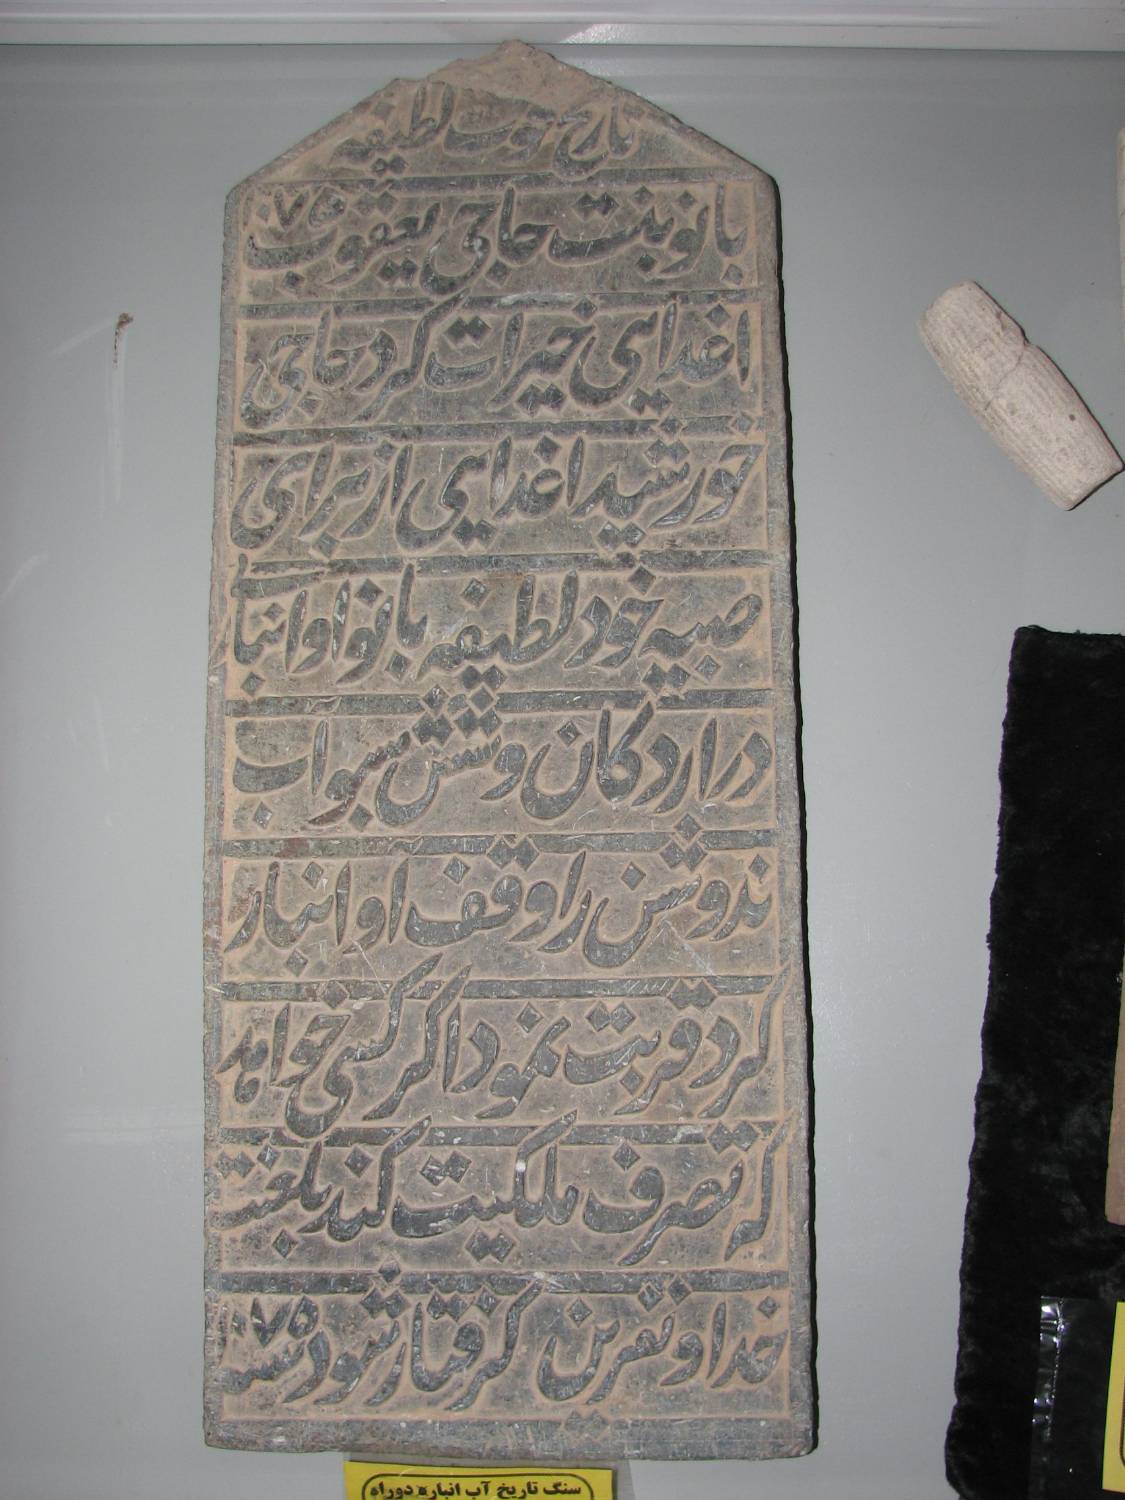 تاریخ فوت لطیفه
بانو بنت حاجی یعقوب ۱۰۷۵
اغدایی خیرات کرد حاجی
خورشید اغدایی از برای
صبیه خود لطیفه بانو او انباری
در اردکان و شش سبو آب
ندوشن را وقف او انبار
کرد قربت نمود اگر کسی خواهد
که تصرف ملکیت کند بلعنت
خدا و نفرین گرفتار شود سنه ۱۰۷۵
سنگ تاریخ آب انباره دوراه